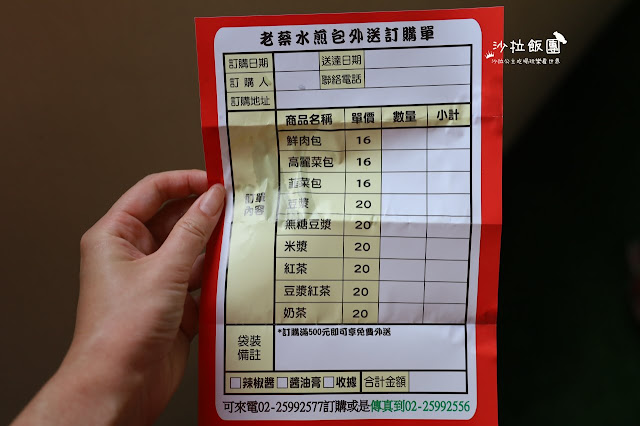 老蔡水煎包外送訂購單
訂購日期 送達日期
訂購人 聯絡電話
訂購地址
訂單內容
商品名稱 單價 數量 小計
鮮肉包 16
高麗菜包 16
韭菜包 16
豆漿 20
無糖豆漿 20
米漿 20
紅茶 20
豆漿紅茶 20
奶茶 20
袋裝備註
*訂購滿500元即可享免費外送
辣椒醬 醬油膏 收據 合計金額
可來電02-25992577訂購或是傳真到02-25992556
沙拉飯團
沙拉公主吃喝玩樂看世界